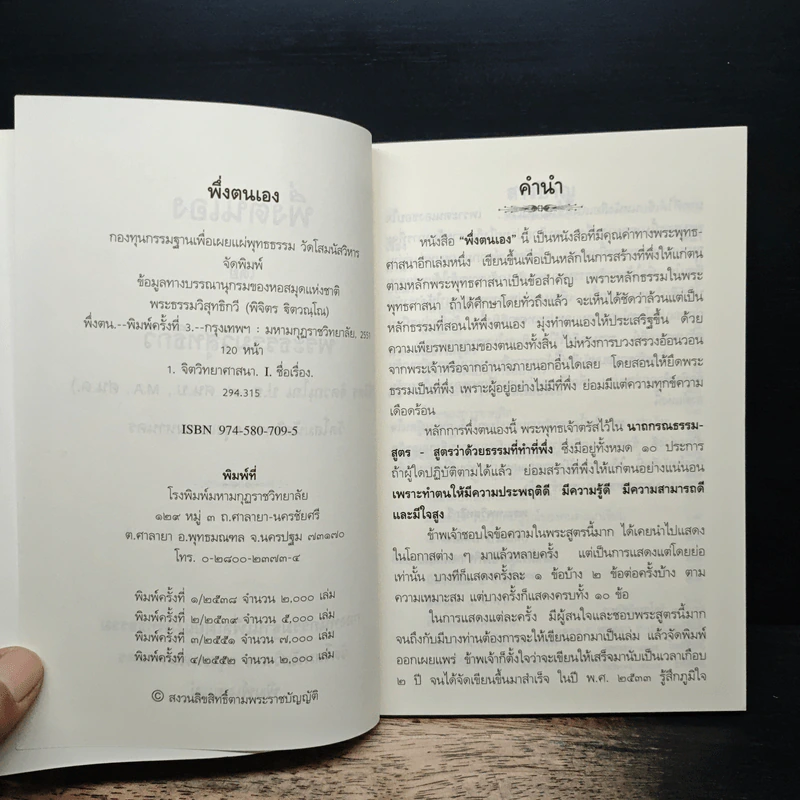 พึ่งตนเอง
กองทุนกรรมฐานเพื่อเผยแผ่พุทธธรรม วัดโสมนัสวิหาร
จัดพิมพ์
ข้อมูลทางบรรณานุกรมของหอสมุดแห่งชาติ
พระธรรมวิสุทธิกวี (พิจิตร ฐิตวณฺโณ)
พึ่งตน.--พิมพ์ครั้งที่ 3.--กรุงเทพฯ : มหามกุฏราชวิทยาลัย, 2551
120 หน้า
1. จิตวิทยาศาสนา. I. ชื่อเรื่อง.
294.315
ISBN 974-580-709-5
พิมพ์ที่
โรงพิมพ์มหามกุฏราชวิทยาลัย
๑๒๙ หมู่ ๓ ถ.ศาลายา-นครชัยศรี
ต.ศาลายา อ.พุทธมณฑล จ.นครปฐม ๗๓๑๗๐
โทร. ๐-๒๘๐๐-๒๓๗๓-๔
พิมพ์ครั้งที่ ๑/๒๕๓๘ จำนวน ๒,๐๐๐ เล่ม
พิมพ์ครั้งที่ ๒/๒๕๓๙ จำนวน ๕,๐๐๐ เล่ม
พิมพ์ครั้งที่ ๓/๒๕๕๑ จำนวน ๗,๐๐๐ เล่ม
พิมพ์ครั้งที่ ๔/๒๕๕๒ จำนวน ๒,๐๐๐ เล่ม
© สงวนลิขสิทธิ์ตามพระราชบัญญัติ
คำนำ
หนังสือ "พึ่งตนเอง" นี้ เป็นหนังสือที่มีคุณค่าทางพระพุทธ-
ศาสนาอีกเล่มหนึ่ง เขียนขึ้นเพื่อเป็นหลักในการสร้างที่พึ่งให้แก่ตน
ตามหลักพระพุทธศาสนาเป็นข้อสำคัญ เพราะหลักธรรมในพระ
พุทธศาสนา ถ้าได้ศึกษาโดยทั่วถึงแล้ว จะเห็นได้ชัดว่าล้วนแต่เป็น
หลักธรรมที่สอนให้พึ่งตนเอง มุ่งทำตนเองให้ประเสริฐขึ้น ด้วย
ความเพียรพยายามของตนเองทั้งสิ้น ไม่หวังการบวงสรวงอ้อนวอน
จากพระเจ้าหรือจากอำนาจภายนอกอื่นใดเลย โดยสอนให้ยึดพระ
ธรรมเป็นที่พึ่ง เพราะผู้อยู่อย่างไม่มีที่พึ่ง ย่อมมีแต่ความทุกข์ความ
เดือดร้อน
หลักการพึ่งตนเองนี้ พระพุทธเจ้าตรัสไว้ใน นาถกรณธรรม-
สูตร - สูตรว่าด้วยธรรมที่ทำที่พึ่ง ซึ่งมีอยู่ทั้งหมด ๑๐ ประการ
ถ้าผู้ใดปฏิบัติตามได้แล้ว ย่อมสร้างที่พึ่งให้แก่ตนอย่างแน่นอน
เพราะทำตนให้มีความประพฤติดี มีความรู้ดี มีความสามารถดี
และมีใจสูง
ข้าพเจ้าชอบใจข้อความในพระสูตรนี้มาก ได้เคยนำไปแสดง
ในโอกาสต่าง ๆ มาแล้วหลายครั้ง แต่เป็นการแสดงแต่โดยย่อ
เท่านั้น บางทีก็แสดงครั้งละ ๑ ข้อบ้าง ๒ ข้อต่อครั้งบ้าง ตาม
ความเหมาะสม แต่บางครั้งก็แสดงครบทั้ง ๑๐ ข้อ
ในการแสดงแต่ละครั้ง มีผู้สนใจและชอบพระสูตรนี้มาก
จนถึงกับมีบางท่านต้องการจะให้เขียนออกมาเป็นเล่ม แล้วจัดพิมพ์
ออกเผยแพร่ ข้าพเจ้าก็ตั้งใจว่าจะเขียนให้เสร็จมานับเป็นเวลาเกือบ
๒ ปี จนได้จัดเขียนขึ้นมาสำเร็จ ในปี พ.ศ. ๒๕๓๓ รู้สึกภูมิใจ